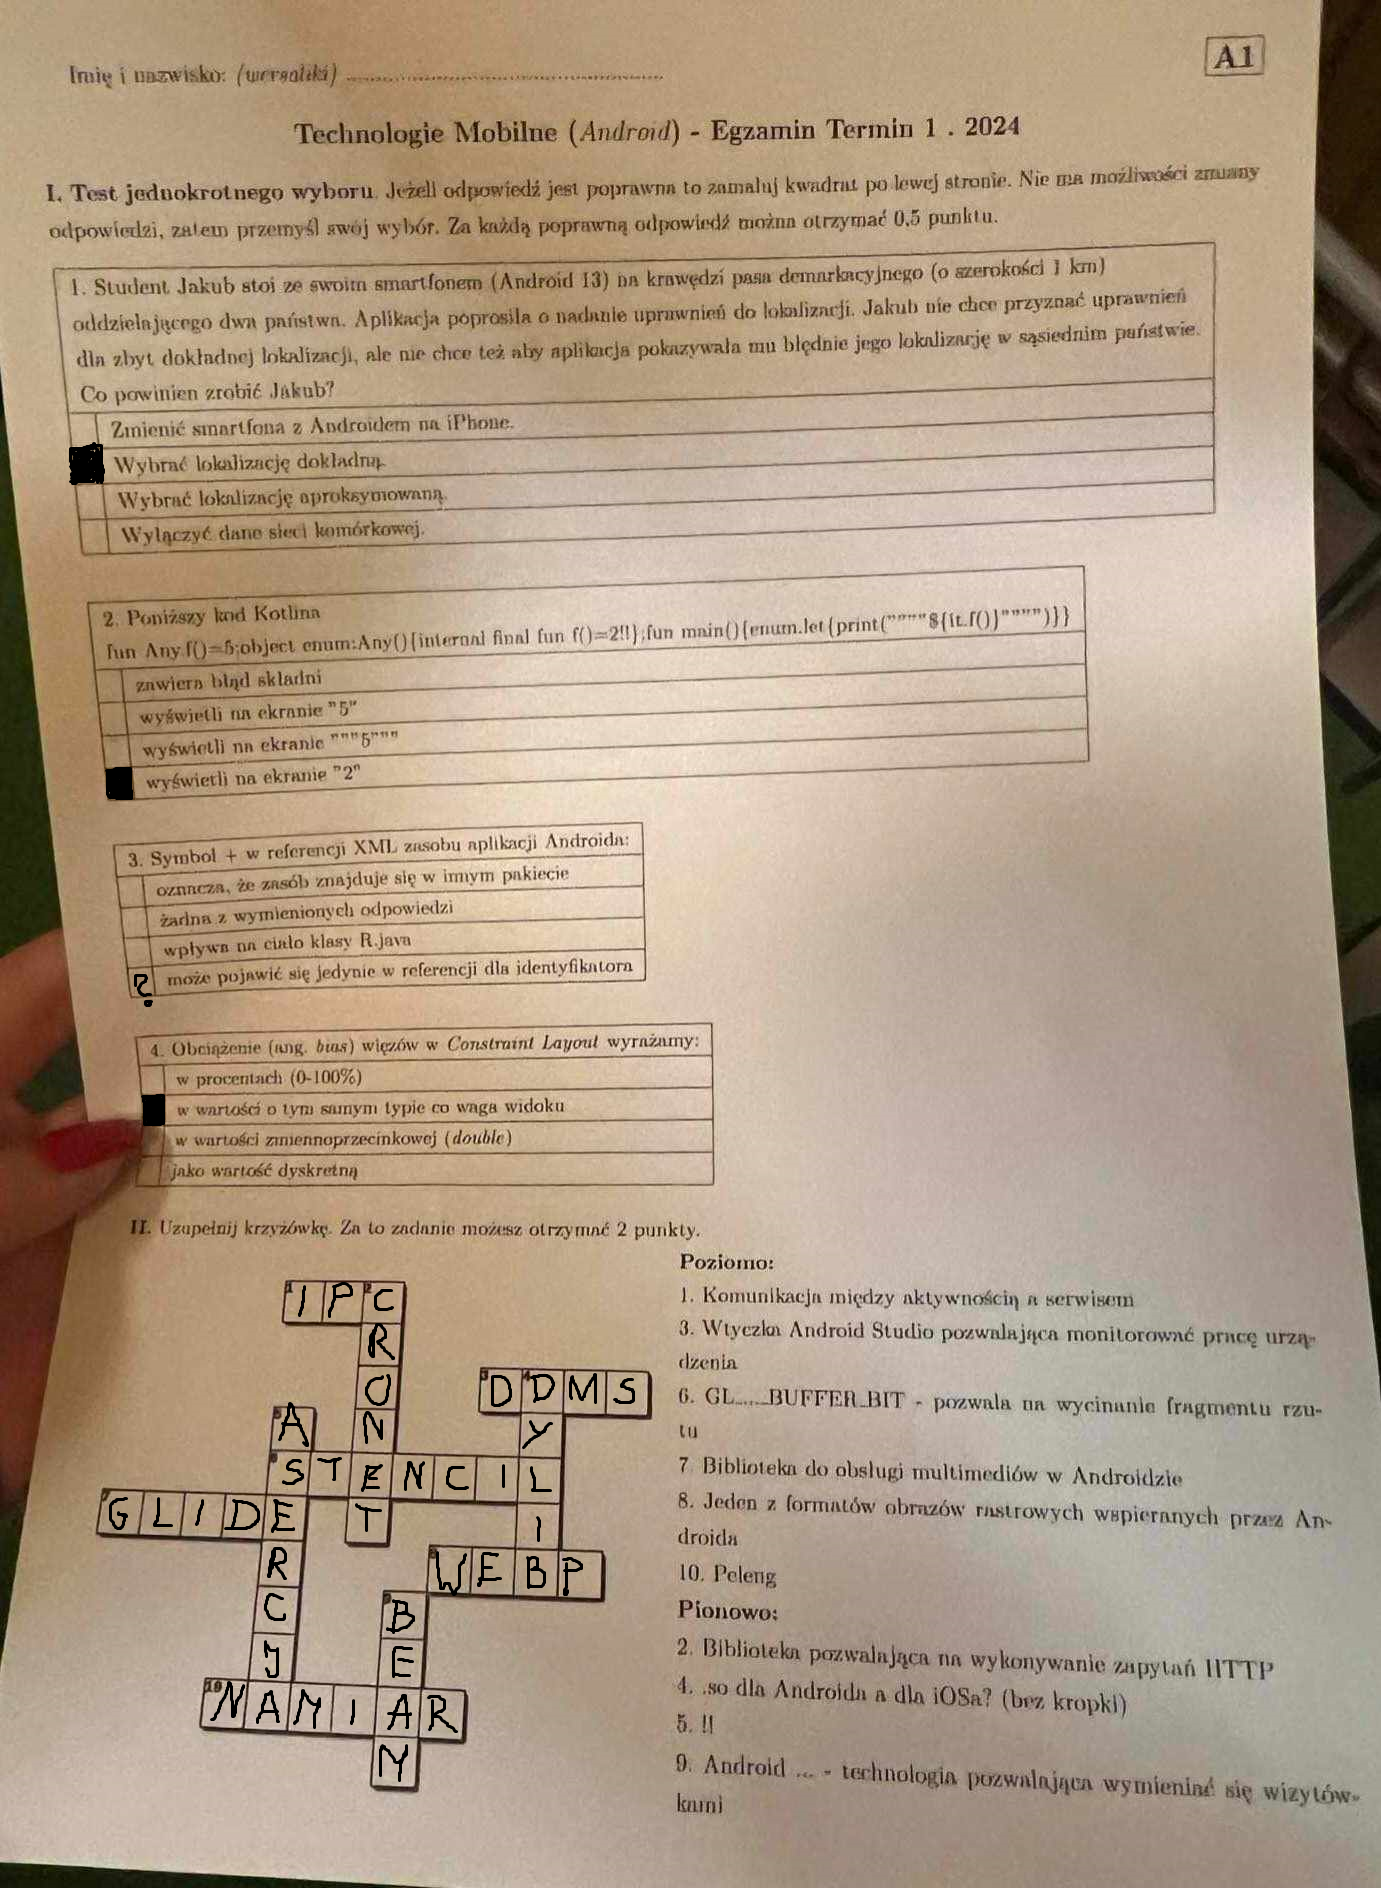 Imię i nazwisko: (wersaliki) ........................................
A1
Technologie Mobilne (Android) - Egzamin Termin 1 . 2024
I. Test jednokrotnego wyboru. Jeżeli odpowiedź jest poprawna to zamaluj kwadrat po lewej stronie. Nie ma możliwości zmiany
odpowiedzi, zatem przemyśl swój wybór. Za każdą poprawną odpowiedź można otrzymać 0,5 punktu.
1. Student Jakub stoi ze swoim smartfonem (Android 13) na krawędzi pasa demarkacyjnego (o szerokości 1 km)
oddzielającego dwa państwa. Aplikacja poprosiła o nadanie uprawnień do lokalizacji. Jakub nie chce przyznać uprawnień
dla zbyt dokładnej lokalizacji, ale nie chce też aby aplikacja pokazywała mu błędnie jego lokalizację w sąsiednim państwie.
Co powinien zrobić Jakub?
Zmienić smartfona z Androidem na iPhone.
Wybrać lokalizację dokładną.
Wybrać lokalizację aproksymowaną.
Wyłączyć dane sieci komórkowej.
2. Poniższy kod Kotlina
fun Any.f()=5;object enum:Any(){internal final fun f()=2!!};fun main(){enum.let{print(""""${it.f()}"""")}}
zawiera błąd składni
wyświetli na ekranie "5"
wyświetli na ekranie """5"""
wyświetli na ekranie "2"
3. Symbol + w referencji XML zasobu aplikacji Androida:
oznacza, że zasób znajduje się w innym pakiecie
żadna z wymienionych odpowiedzi
wpływa na ciało klasy R.java
? może pojawić się jedynie w referencji dla identyfikatora
4. Obciążenie (ang. bias) więzów w Constraint Layout wyrażamy:
w procentach (0-100%)
w wartości o tym samym typie co waga widoku
w wartości zmiennoprzecinkowej (double)
jako wartość dyskretną
II. Uzupełnij krzyżówkę. Za to zadanie możesz otrzymać 2 punkty.
IPC
CRONET
DDMS
DYLIB
ASERCJA
STENCIL
GLIDE
WEBP
BEAM
NAMIAR
Poziomo:
1. Komunikacja między aktywnością a serwisem
3. Wtyczka Android Studio pozwalająca monitorować pracę urzą-
dzenia
6. GL_..._BUFFER_BIT - pozwala na wycinanie fragmentu rzu-
tu
7 Biblioteka do obsługi multimediów w Androidzie
8. Jeden z formatów obrazów rastrowych wspieranych przez An-
droida
10. Peleng
Pionowo:
2. Biblioteka pozwalająca na wykonywanie zapytań HTTP
4. .so dla Androida a dla iOSa? (bez kropki)
5. !!
9. Android ... - technologia pozwalająca wymieniać się wizytów-
kami